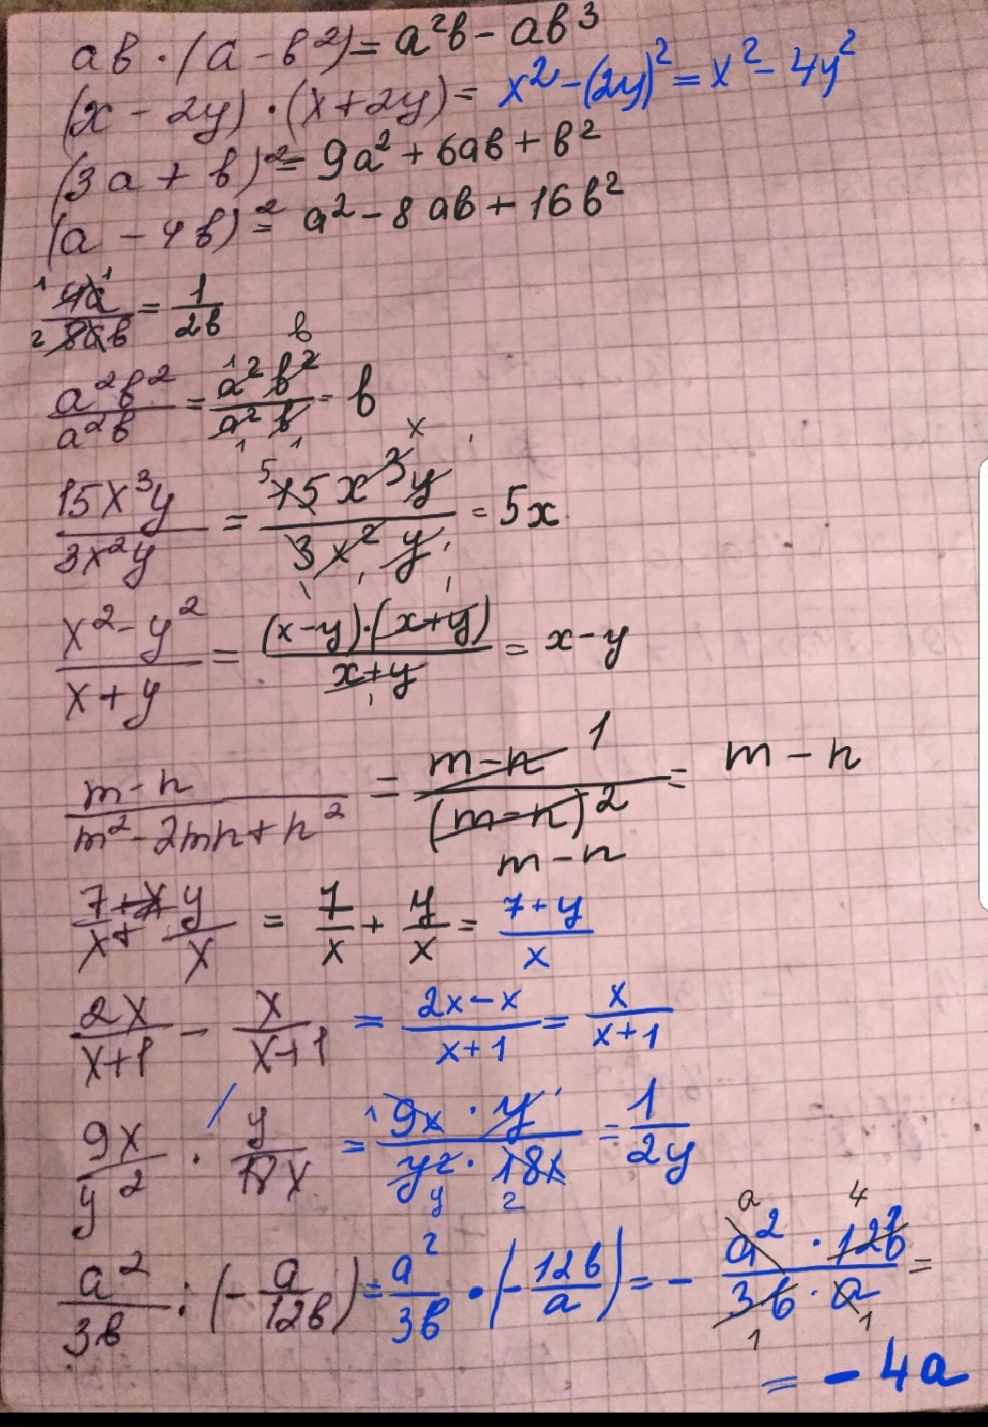 ab · (a - b²) = a²b - ab³
(x - 2y) · (x + 2y) = x² - (2y)² = x² - 4y²
(3a + b)² = 9a² + 6ab + b²
(a - 4b)² = a² - 8ab + 16b²
4a/8ab = 1/2b
a²b²/a²b = a²b²/a²b = b
15x³y/3x²y = 15x³y/3x²y = 5x
x² - y²/x + y = (x - y) · (x + y)/x + y = x - y
m - n/m² - 2mn + n² = m - n/(m - n)² = m - n
7/x + y/x = 7/x + y/x = 7 + y/x
2x/x + 1 - x/x + 1 = 2x - x/x + 1 = x/x + 1
9x/y² · y/18x = 9x · y/y² · 18x = 1/2y
a²/3b : (- a/12b) = a²/3b · (- 12b/a) = - a² · 12b/3b · a =
= - 4a